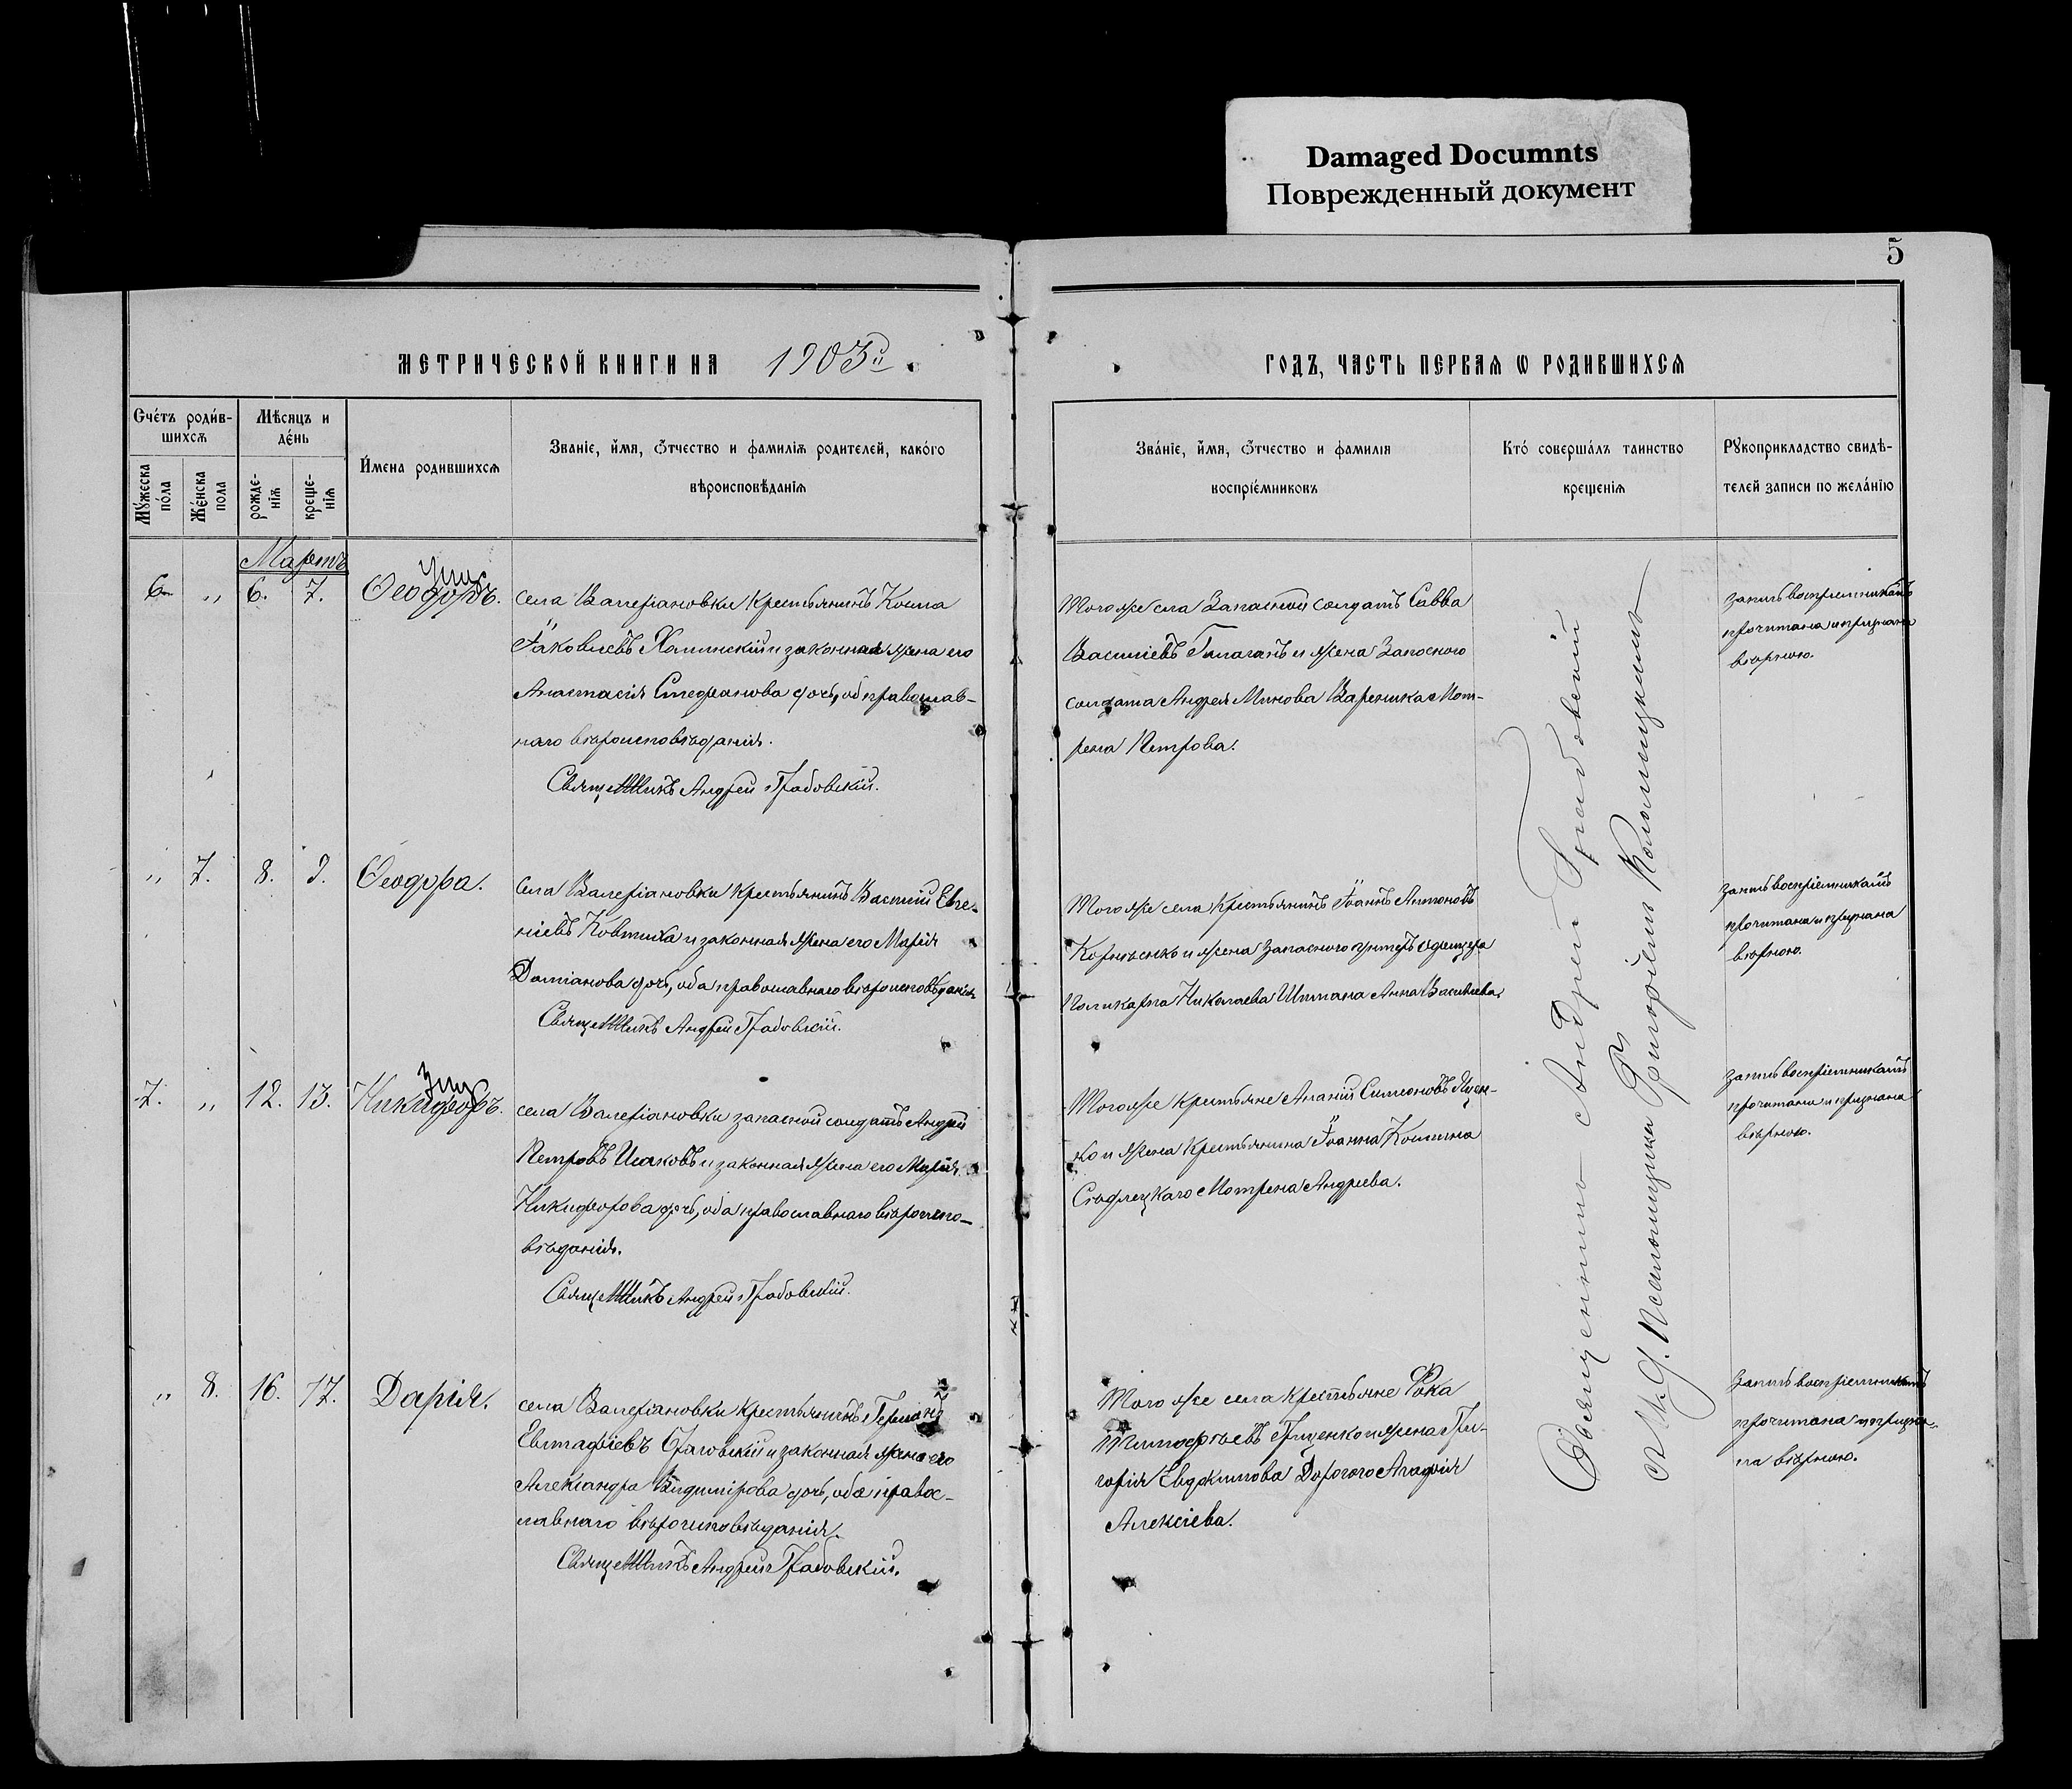 Damaged Documnts
Поврежденный документ
5
МЕТРИЧЕСКОЙ КНИГИ НА 1903й
ГОДЪ, ЧАСТЬ ПЕРВАЯ Ѡ РОДИВШИХСЯ
Счéтъ роди́в-
шихсѧ
Мѣсяцъ и
дéнь
Му́жеска
пóла
Жéнска
пола
рожде-
нїѧ
креще-
нїѧ
И́мена родившихсѧ
Званїе, и́мя, ѻ́тчество и фамилїѧ родителей, какóго
вѣроисповѣданїѧ
Звáнїе, и́мя, ѻ́тчество и фамилїя
воспрїéмниковъ
Ктó совершáлъ таинство
крещенїѧ
Рꙋкоприкладство свидѣ-
телей записи по желáнїю
Мартъ
6 „ 6. 7. Ѳеодоръ.
села Валеріановки крестьянинъ Косма
Іаковлевъ Халинскій и законная жена его
Анастасія Стефанова дочь, об. православ-
наго вѣроисповѣданія.
Священникъ Андрей Грабовскій.
Того же села Запасной солдатъ Савва
Василіевъ Галаганъ и жена Запасного
солдата Андрея Минова Вареника Мот-
рена Петрова.
Запись воспріемникамъ
прочитана и признана
вѣрною.
„ 7. 8. 9. Ѳеодора.
села Валеріановки крестьянинъ Василій Евге-
ніевъ Ковтуха и законная жена его Марія
Даміанова дочь, оба православнаго вѣроисповѣданія
Священникъ Андрей Грабовскій.
Того же села крестьянинъ Іоаннъ Антоновъ
Корнѣенко и жена запасного унтеръ офицера
Поликарпа Николаева Шпана Анна Василіева.
Запись воспріемникамъ
прочитана и признана
вѣрною.
7. „ 12. 13. Никифоръ.
села Валеріановки запасной солдатъ Андрей
Петровъ Исаковъ и законная жена его Марія
Никифорова дочь, оба православнаго вѣроиспо-
вѣданія.
Священникъ Андрей Грабовскій.
Того же крестьяне Ананій Симеоновъ Яцен-
ко и жена крестьянина Іоанна Космина
Сѣдлецкаго Мотрена Андреева.
Запись воспріемникамъ
прочитана и признана
вѣрною.
„ 8. 16. 17. Дарія.
села Валеріановки крестьянинъ Германъ
Евстафіевъ Ораловскій и законная жена его
Александра Владимірова дочь, оба правос-
лавнаго вѣроисповѣданія.
Священникъ Андрей Грабовскій.
Того же села крестьяне Фока
Тимофѣевъ Гриценко и жена Гри-
горія Евдокимова Дорогого Агафія
Алексіева.
Запись воспріемникамъ
прочитана и призна-
на вѣрною.
Священникъ Андрей Грабовскій
съ И. д. Псаломщика Григоріемъ Коломицкимъ